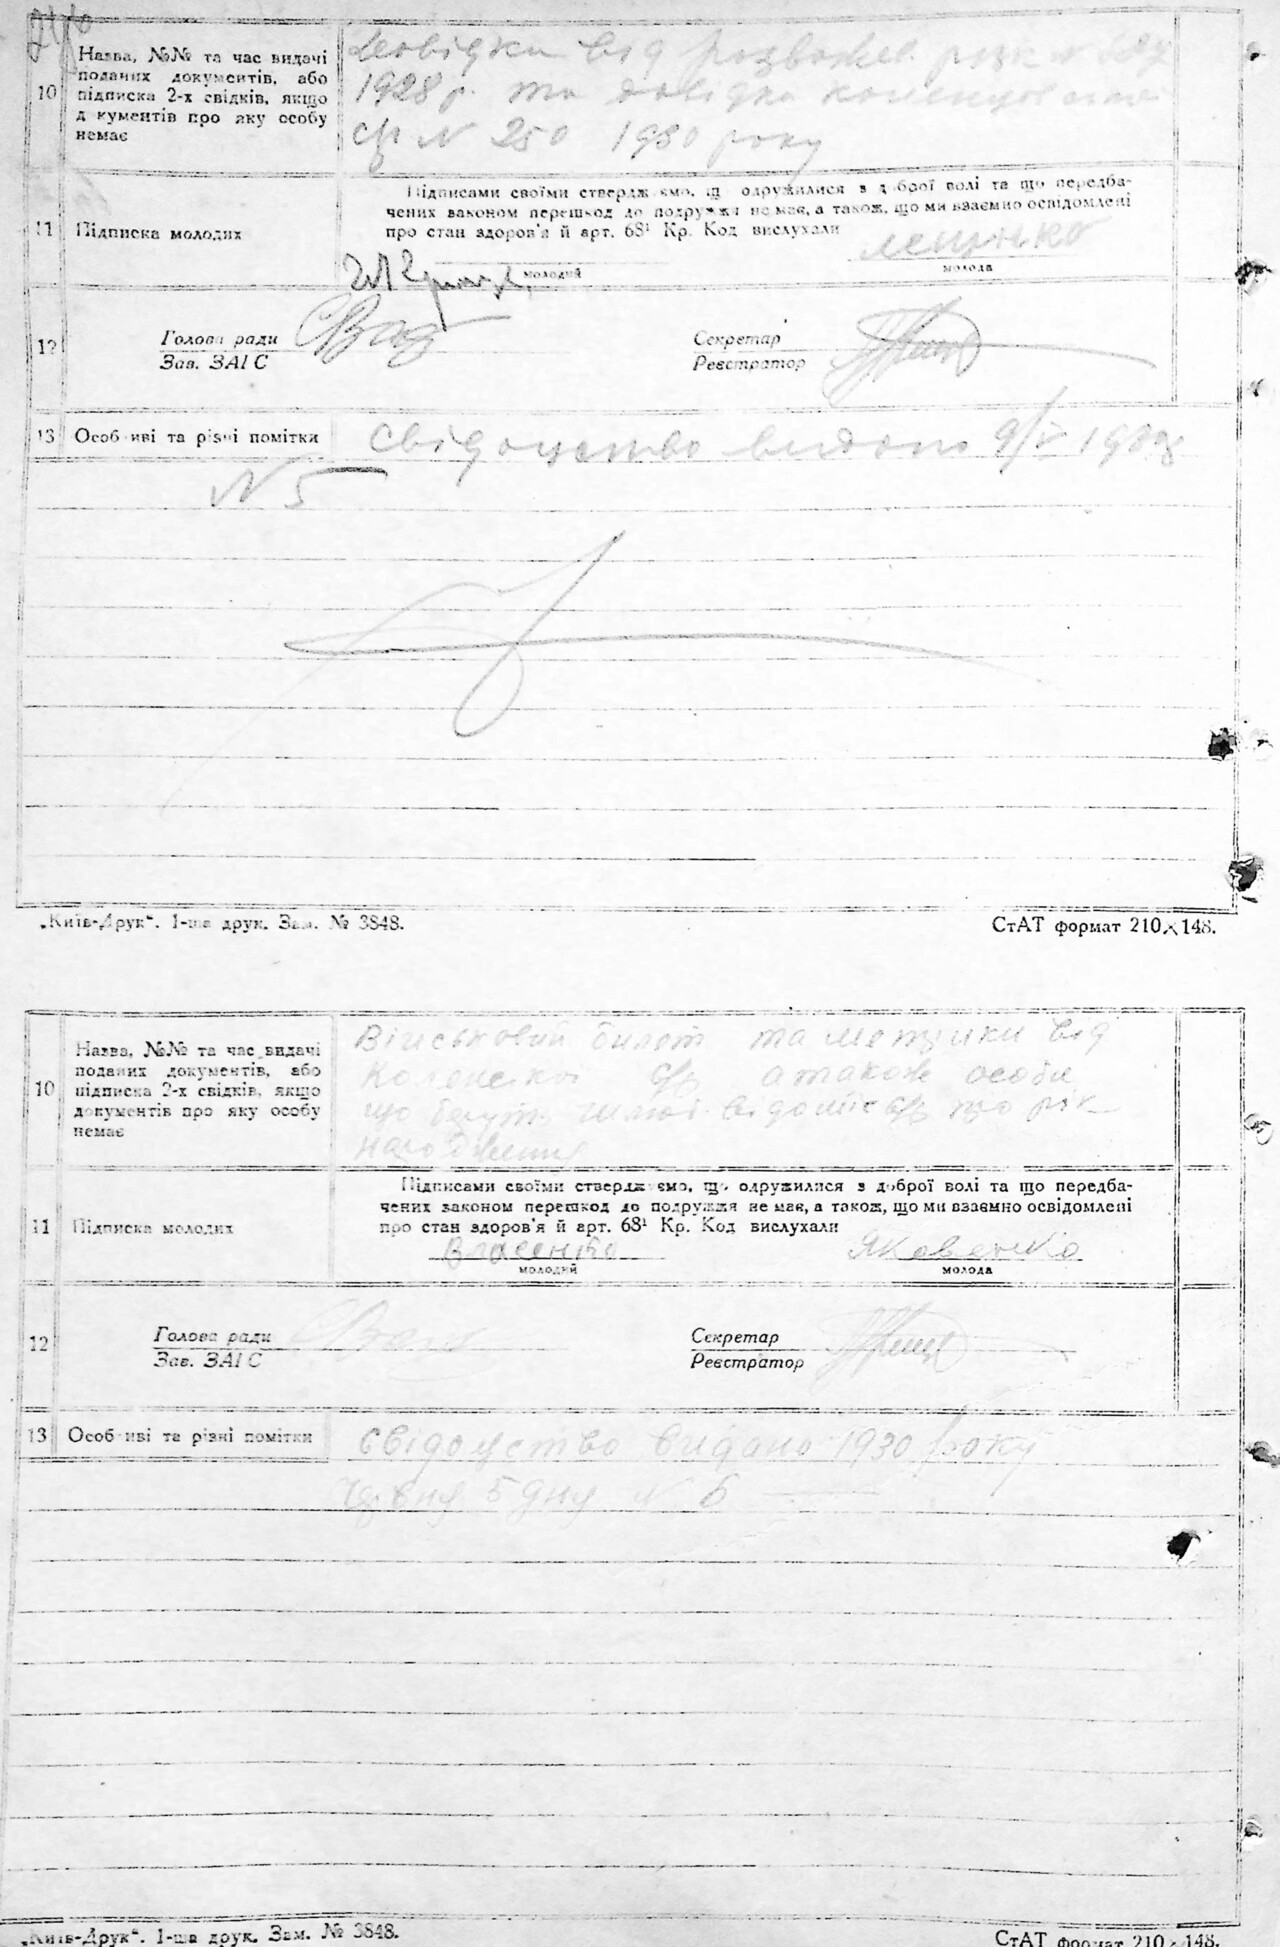 10
Назва, №№ та час видачі
поданих документів, або
підписка 2-х свідків, якщо
д кументів про яку особу
немає
Довідки від
1928 р. та довідка
с/р N 250 1930 року
11
Підписка молодих
Підписами своїми стверджуємо, що одружилися з доброї волі та що передба-
чених законом перешкод до подружжя не має, а також, що ми взаємно освідомлені
про стан здоров'я й арт. 68¹ Кр. Код вислухали
молодий
молода
12
Голова ради
Зав. ЗАГС
Секретар
Реєстратор
13
Особ иві та різні помітки
свідоцтво видано 9/V 1930
N 5
„Київ-Друк“. 1-ша друк. Зам. № 3848.
СтАТ формат 210×148.
10
Назва, №№ та час видачі
поданих документів, або
підписка 2-х свідків, якщо
документів про яку особу
немає
Військовий билет та метрики від
с/р а також особи
що с/р про рік
народження
11
Підписка молодих
Підписами своїми стверджуємо, що одружилися з доброї волі та що передба-
чених законом перешкод до подружжя не має, а також, що ми взаємно освідомлені
про стан здоров'я й арт. 68¹ Кр. Код вислухали
Власенко
молодий
Яковенко
молода
12
Голова ради
Зав. ЗАГС
Секретар
Реєстратор
13
Особ иві та різні помітки
свідоцтво видано 1930 року
червня 5 дня N 6
„Київ-Друк“. 1-ша друк. Зам. № 3848.
СтАТ формат 210×148.